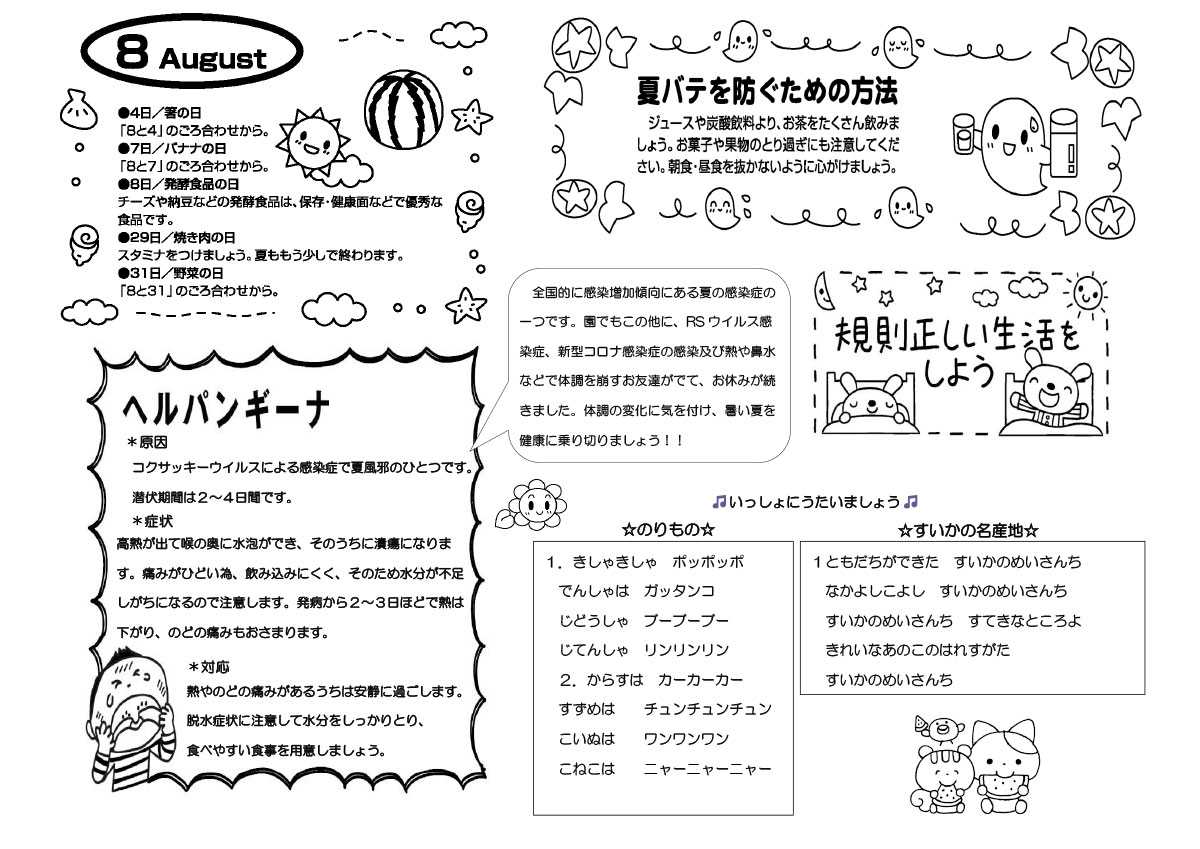 8 August
●4日／箸の日
「8と4」のごろ合わせから。
●7日／バナナの日
「8と7」のごろ合わせから。
●8日／発酵食品の日
チーズや納豆などの発酵食品は、保存・健康面などで優秀な
食品です。
●29日／焼き肉の日
スタミナをつけましょう。夏ももう少しで終わります。
●31日／野菜の日
「8と31」のごろ合わせから。
夏バテを防ぐための方法
ジュースや炭酸飲料より、お茶をたくさん飲みま
しょう。お菓子や果物のとり過ぎにも注意してくだ
さい。朝食・昼食を抜かないように心がけましょう。
全国的に感染増加傾向にある夏の感染症の
一つです。園でもこの他に、RSウイルス感
染症、新型コロナ感染症の感染及び熱や鼻水
などで体調を崩すお友達がでて、お休みが続
きました。体調の変化に気を付け、暑い夏を
健康に乗り切りましょう！！
規則正しい生活を
しよう
ヘルパンギーナ
＊原因
コクサッキーウイルスによる感染症で夏風邪のひとつです。
潜伏期間は２～４日間です。
＊症状
高熱が出て喉の奥に水泡ができ、そのうちに潰瘍になりま
す。痛みがひどい為、飲み込みにくく、そのため水分が不足
しがちになるので注意します。発病から２～３日ほどで熱は
下がり、のどの痛みもおさまります。
＊対応
熱やのどの痛みがあるうちは安静に過ごします。
脱水症状に注意して水分をしっかりとり、
食べやすい食事を用意しましょう。
♫いっしょにうたいましょう♫
☆のりもの☆
１．きしゃきしゃ　ポッポッポ
でんしゃは　ガッタンコ
じどうしゃ　ブーブーブー
じてんしゃ　リンリンリン
２．からすは　カーカーカー
すずめは　チュンチュンチュン
こいぬは　ワンワンワン
こねこは　ニャーニャーニャー
☆すいかの名産地☆
１ともだちができた　すいかのめいさんち
なかよしこよし　すいかのめいさんち
すいかのめいさんち　すてきなところよ
きれいなあのこのはれすがた
すいかのめいさんち